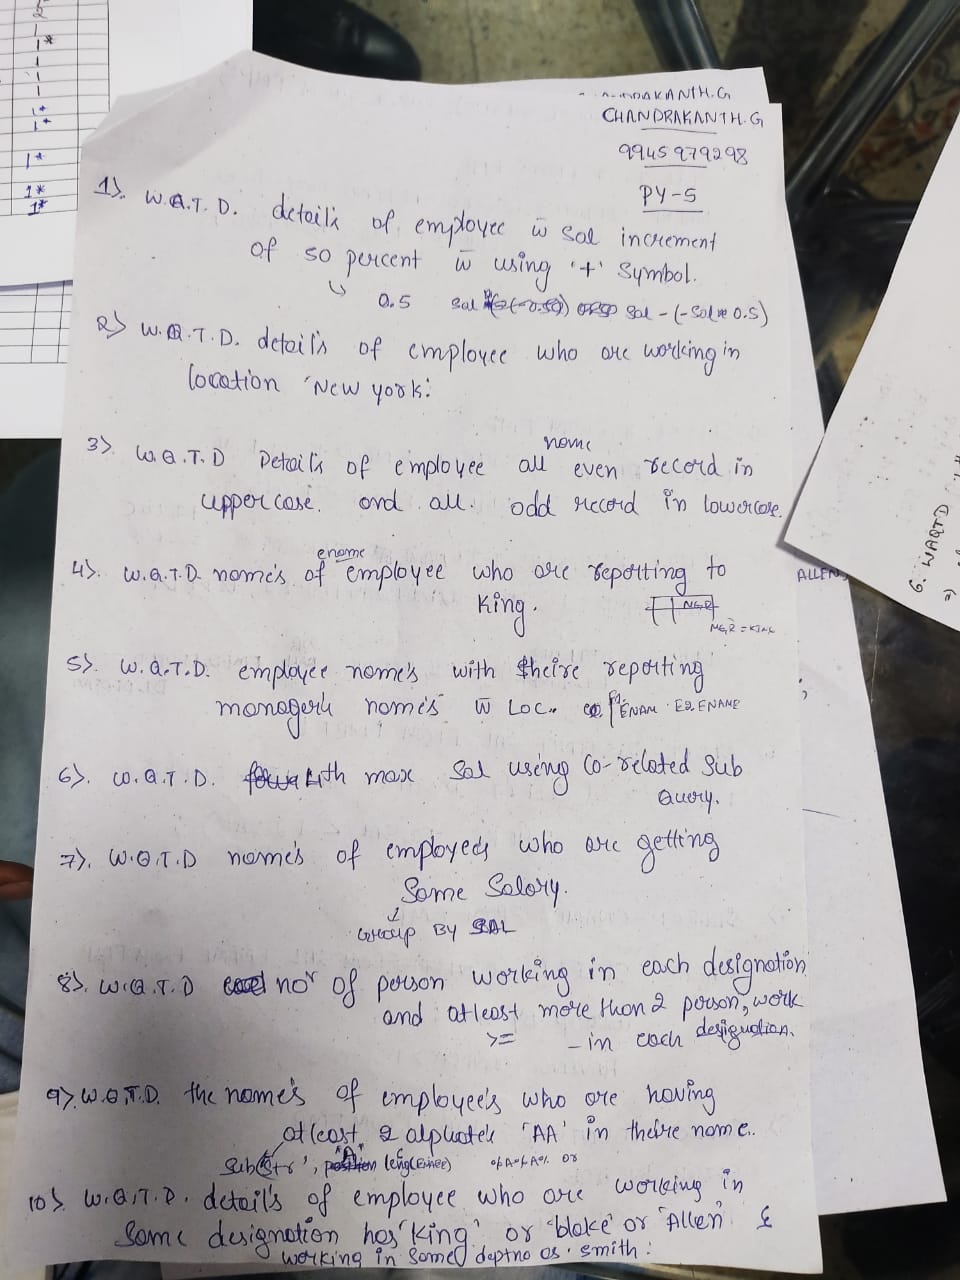 2
1
1*
1
1
1
1*
1*
1*
1*
1*
CHANDRAKANTH.G
CHANDRAKANTH.G
9945979298
PY-5
1). W.Q.T.D. details of employee w̄ sal increment
of 50 percent w̄ using '+' Symbol.
0.5 sal sal-(-sal*0.5)
2) W.Q.T.D. details of employee who are working in
location 'New york'.
3). W.Q.T.D Details of employee all even record in
name
uppercase. and all. odd record in lowercase.
4). W.Q.T.D. name's of employee who are reporting to
ename
King.
MGR
MGR = KING
5). W.Q.T.D. employee name's with theire reporting
manager's name's w̄ Loc. ENAM E2.ENAME
6). W.Q.T.D. 4th max Sal using Co-related Sub
Query.
7). W.Q.T.D name's of employees who are getting
Same Salary.
Group By SAL
8). W.Q.T.D no' of person working in each designation
and atleast more than 2 person, work
>= - in each designation.
9). W.Q.T.D. the name's of employee's who are having
atleast 2 alphate's 'AA' in theire name.
Substr', 'A' leng(Ename) %A%A% or
10). W.Q.T.D. detail's of employee who are working in
Same designation has 'King' or 'blake' or 'Allen' &
working in same deptno as. smith:
ALLEN,
;
6. WAQTD
=)